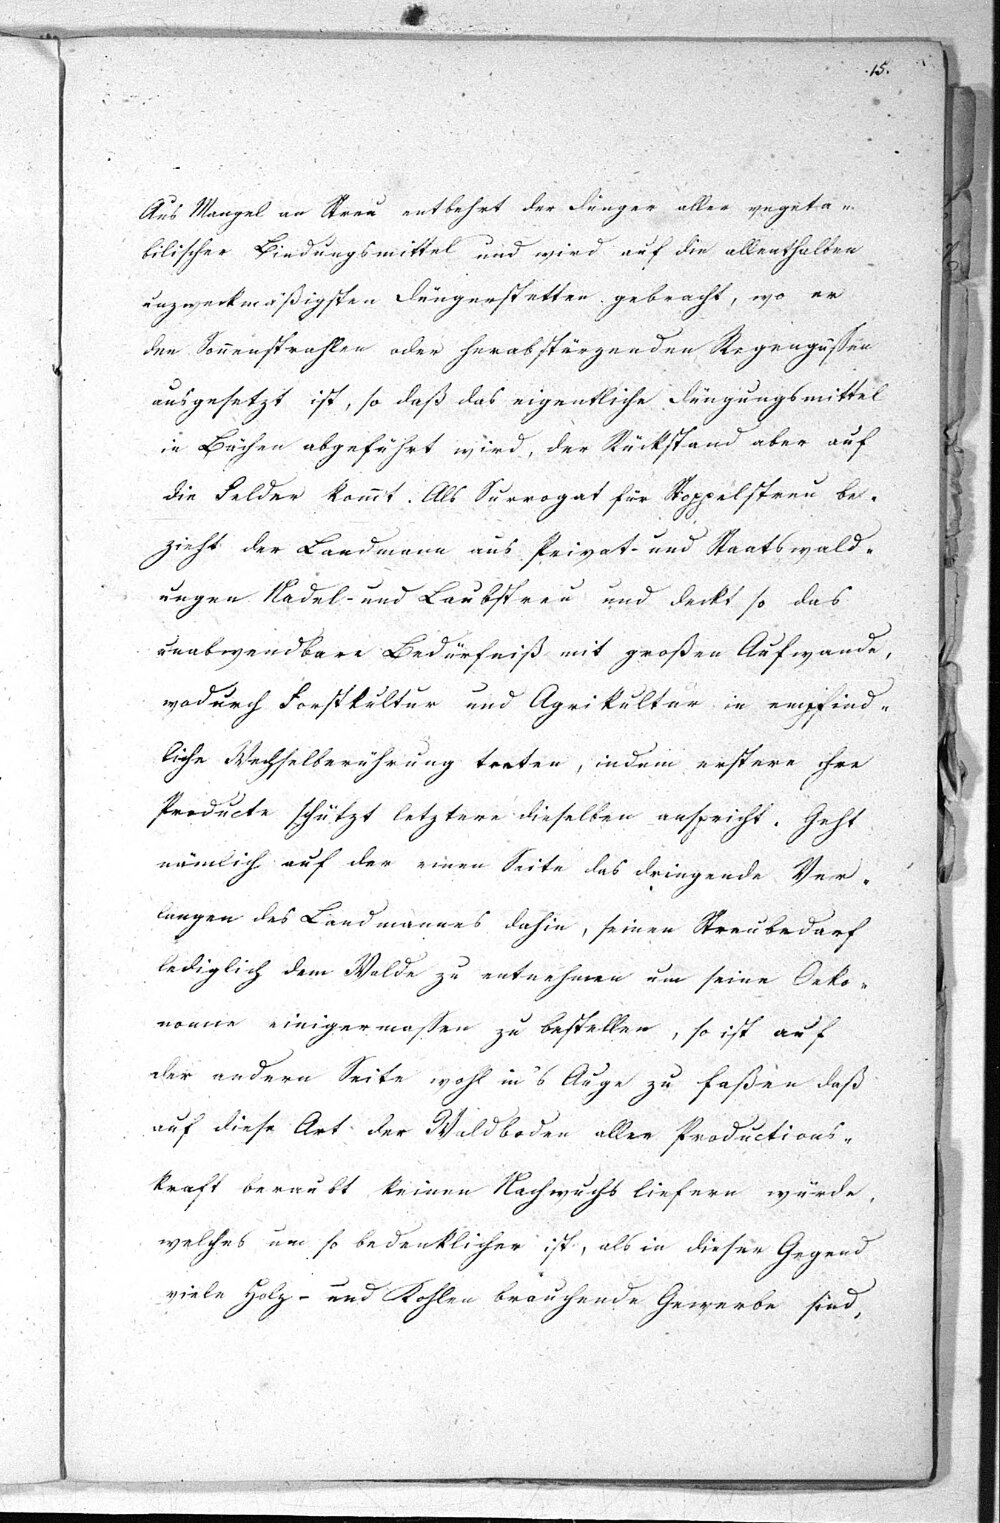 15.
Aus Mangel an Streu entbehrt der Dünger aller vegeta-
bilischer Bindungsmittel und wird auf die allenthalben
unzweckmäßigsten Düngerstetten gebracht, wo er
den Soñenstrahlen oder herabstürzenden Regengüssen
ausgesetzt ist, so daß das eigentliche Düngungsmittel
in Bächen abgeführt wird, der Rückstand aber auf
die Felder kom̃t. Als Surrogat für Stoppelstreu be-
zieht der Landmann aus Privat- und Staatswald-
ungen Nadel- und Laubstreu und deckt so das
unabwendbare Bedürfniß mit großen Aufwande,
wodurch Forstkultur und Agrikultur in empfind-
liche Wechselberührung treten, indem erstere ihre
Producte schützt letztere dieselben anspricht. Geht
nämlich auf der einen Seite das dringende Ver-
langen des Landmannes dahin, seinen Streubedarf
lediglich dem Walde zu entnehmen um seine Oeko-
nomie einigermassen zu bestellen, so ist auf
der andern Seite wohl in's Auge zu faßen daß
auf diese Art der Waldboden aller Productions-
kraft beraubt keinen Nachwuchs liefern würde,
welches um so bedenklicher ist, als in dieser Gegend
viele Holz- und Kohlen brauchende Gewerbe sind,